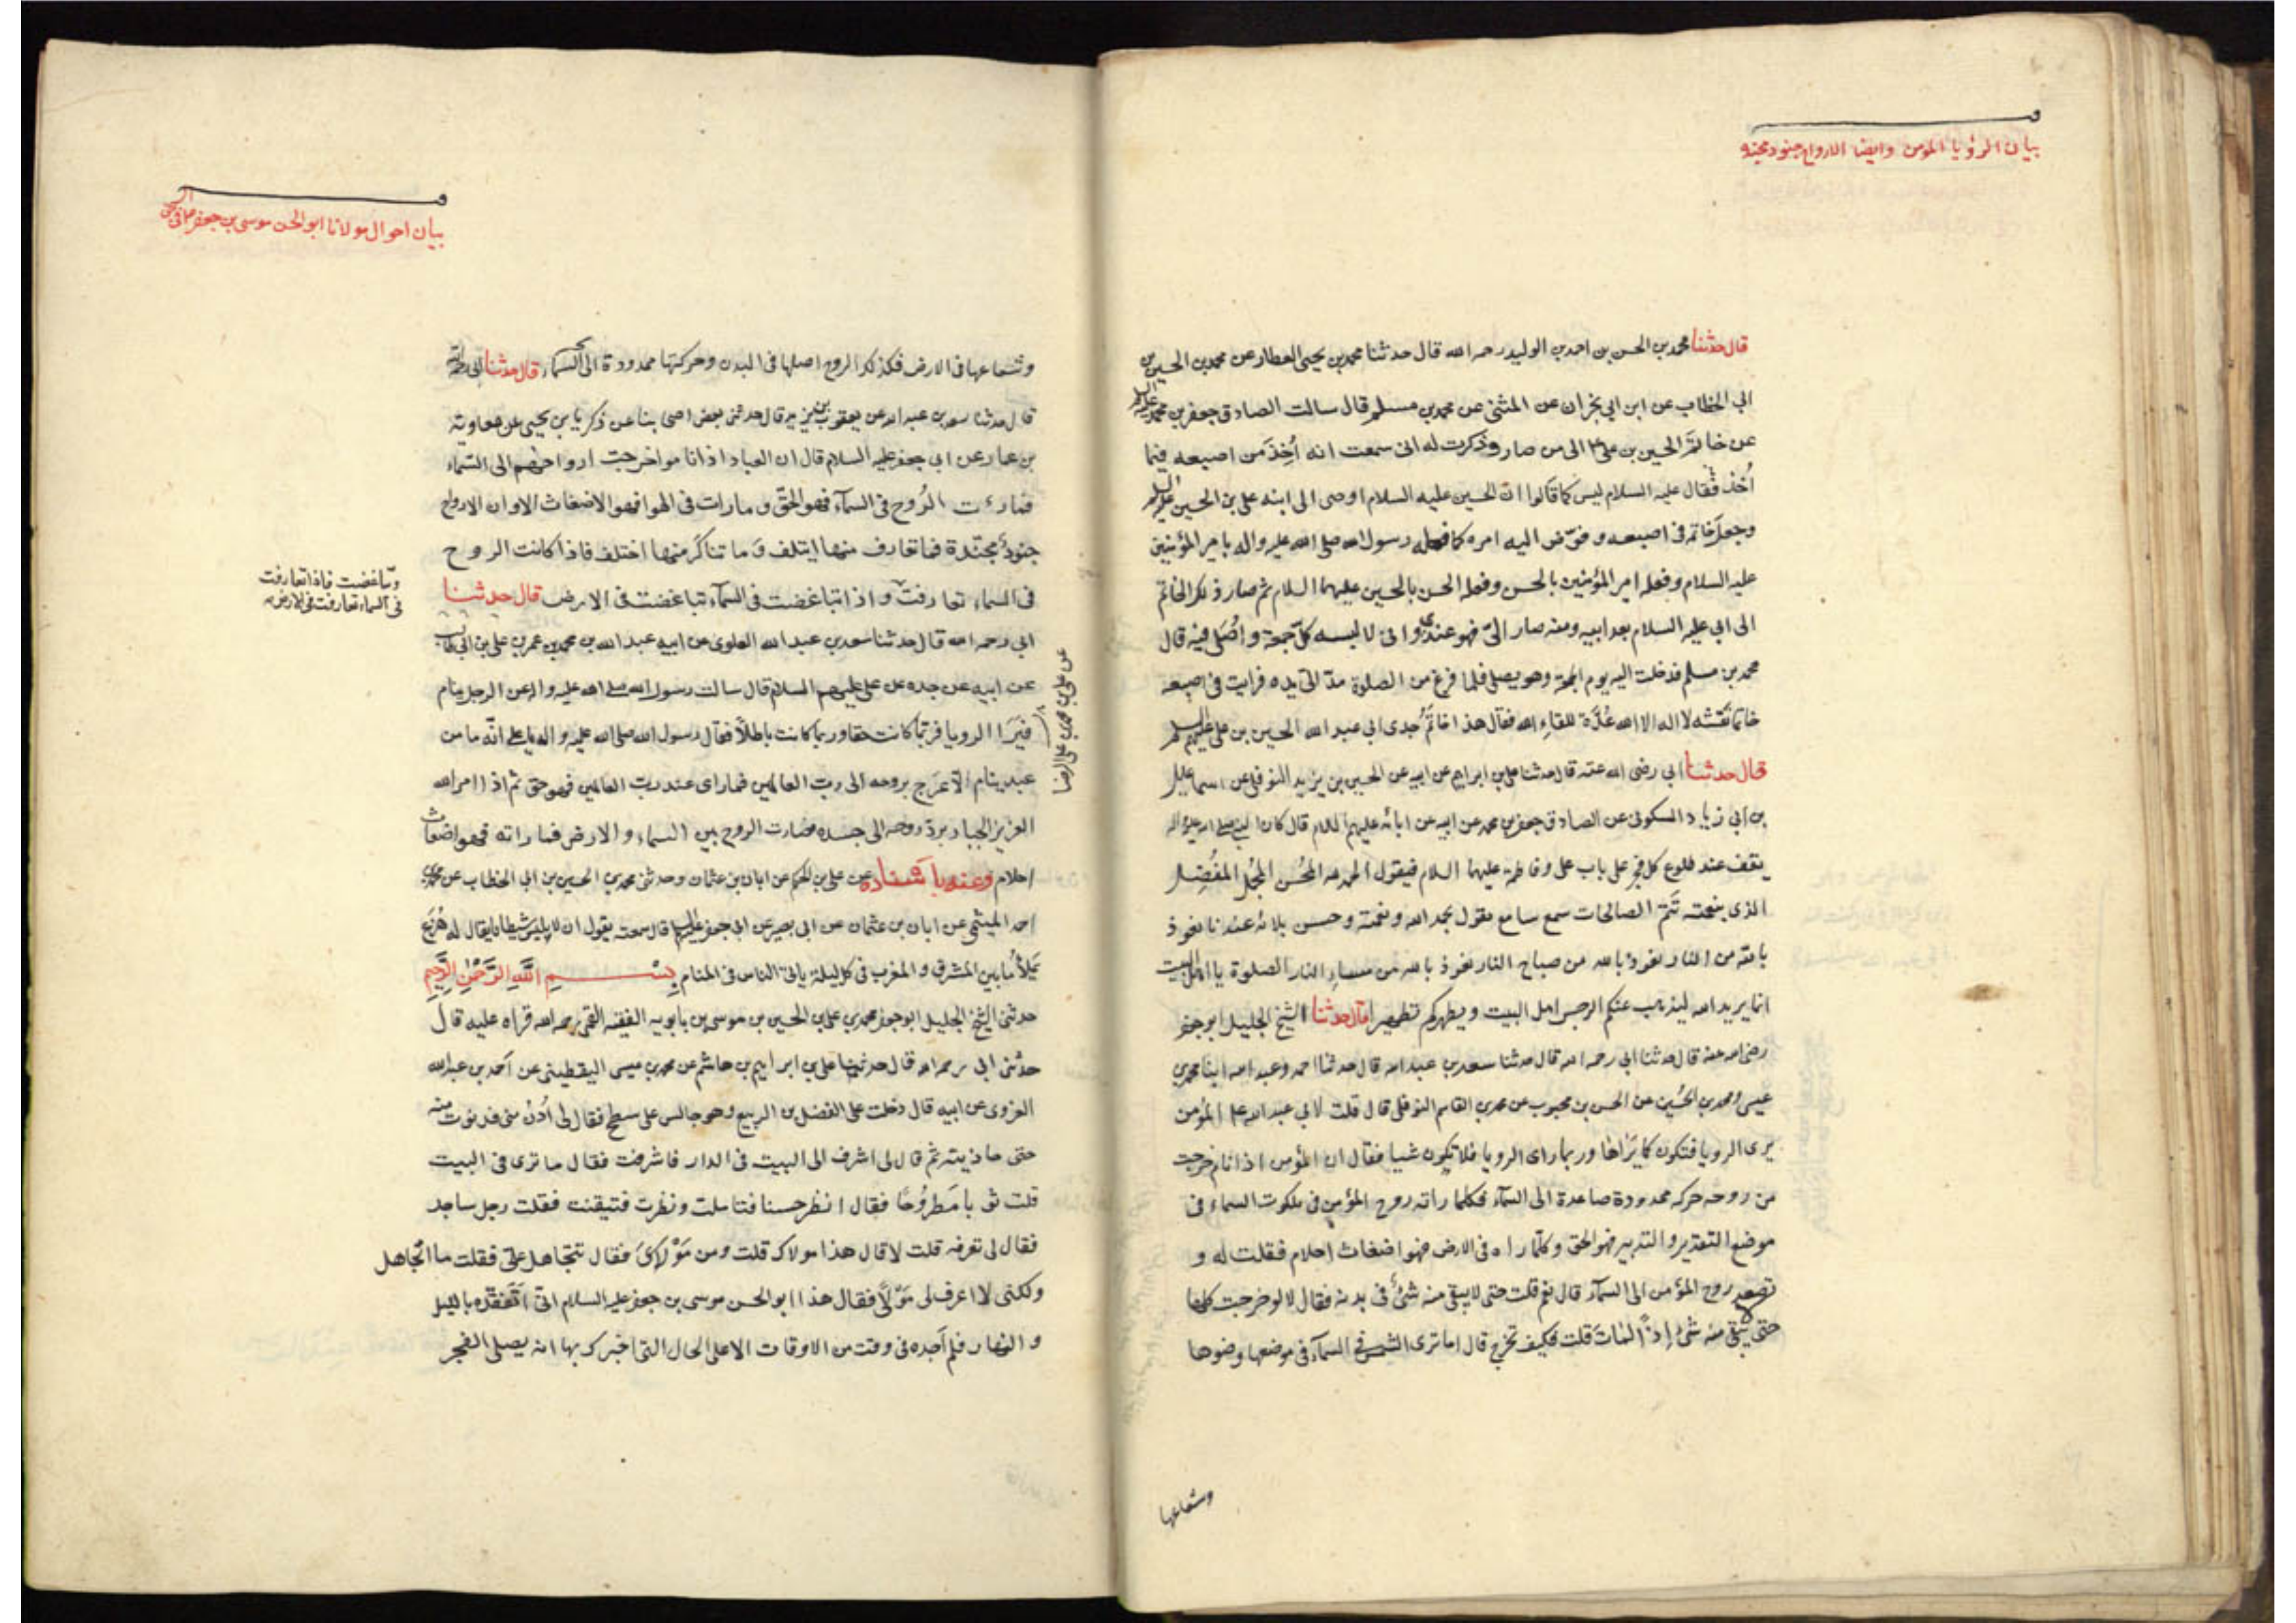 بيان الرؤيا المؤمن وايضا الارواح جنود مجندة
قال حدثنا محمد بن الحسن بن احمد بن الوليد رحمه الله قال حدثنا محمد بن يحيى العطار عن محمد بن الحسين بن
ابي الخطاب عن ابن ابي نجران عن المثنى عن محمد بن مسلم قال سالت الصادق جعفر بن محمد عليه السلم
عن خاتم الحسين بن علي ع الى من صار وذكرت له انى سمعت انه أُخِذَ من اصبعه فيما
أُخذ فقال عليه السلام ليس كما قالوا ان الحسين عليه السلام اوصى الى ابنه على بن الحسين عليه السلم
وجعل خاتمه فى اصبعه وفوّض اليه امره كما فعله رسول الله صلى الله عليه واله بامير المؤمنين
عليه السلام وفعله امير المؤمنين بالحسن وفعله الحسن بالحسين عليهما السلام ثم صار ذلك الخاتم
الى ابي عليه السلام بعد ابيه ومنه صار الىّ فهو عندى وانى لالبسه كلّ جمعة واُصَلى فيه قال
محمد بن مسلم فدخلت اليه يوم الجمعة وهو يصلى فلما فرغ من الصلوة مدّ الىّ يده فرايت فى اصبعه
خاتما نَقشه لا اله الا الله عُدّة للقاء الله فقال هذا خاتم جدى ابى عبد الله الحسين بن على عليهم السلم
قال حدثنا ابي رضى الله عنه قال حدثنا على بن ابراهيم عن ابيه عن الحسين بن يزيد النوفلى عن اسماعيل
بن ابى زياد السكونى عن الصادق جعفر بن محمد عن ابيه عن ابائه عليهم السلام قال كان النبى صلى الله عليه واله
يقف عند طلوع كل فجر على باب على وفاطمة عليهما السلام فيقول الحمد لله المحُسن المجُمل المفُضِل
الذى بنعمته تَتم الصالحات سمع سامع بقول بحمد الله ونعمته وحسن بلائه عندنا نعوذ
بالله من النار نعوذ بالله من صباح النار نعوذ بالله من مساء النار الصلوة يا اهل البيت
انما يريد الله ليذهب عنكم الرجس اهل البيت ويطهركم تطهيرا قال حدثنا الشيخ الجليل ابو جعفر
رضى الله عنه قال حدثنا ابى رحمه الله قال حدثنا سعد بن عبد الله قال حدثنا احمد وعبد الله ابنا محمد بن
عيسى ومحمد بن الحسُين عن الحسن بن محبوب عن محمد بن القاسم النوفلى قال قلت لابى عبد الله ع المؤمن
يرى الرويا فتكون كما يَرَاها وربما راى الرويا فلا تكون شيا فقال ان المؤمن اذا نام خرجت
من روحه حركه ممدودة صاعدة الى السمآء فكلما راته روح المؤمن فى ملكوت السماء فى
موضع التقدير والتدبير فهو الحق وكلما راه فى الارض فهو اضغاث احلام فقلت له و
تصعد روح المؤمن الى السمآء قال نعم قلت حتى لا يبقى منه شئ فى بدنه فقال لا لو خرجت كلها
حتى لا يبقى منه شئ إذاً لمات قلت فكيف تخرج قال اما ترى الشمس فى السمآء فى موضعها وضوها
وشعاعها
بيان احوال مولانا ابو الحسن موسى بن جعفر
وشعاعها فى الارض فكذلك الروح اصلها فى البدن وحركتها ممدودة الى السمآء قال حدثنا ابى رحمه الله
قال حدثنا سعد بن عبد الله عن يعقوب بن يزيد قال حدثنى بعض اصحابنا عن زكريا بن يحيى عن معاوية
بن عمار عن ابى جعفر عليه السلام قال ان العباد اذا ناموا خرجت ارواحهم الى السّماء
فما رءت الرُوح فى السمآء فهو الحَقّ وما رات فى الهوا فهو الاضغاث الا وان الارواح
جنودٌ مجنّدة فما تعارف منها ايتلف وَما تناكَر منها اختلف فاذا كانت الروح
فى السماء تعارفت واذا تباغضت فى السمآء تباغضت فى الارض قال حدثنا
وتباغضت فاذا تعارفت
فى السماء تعارفت فى الارض
ابى رحمه الله قال حدثنا سعد بن عبد الله العلوى عن ابيه عبد الله بن محمد بن عمر بن على بن ابى طالب
عن ابيه عن جده عن على عليهم السلام قال سالت رسول الله صلى الله عليه واله عن الرجل ينام
فيَرَا الرويا فربّما كانت حقا وربما كانت باطلاً فقال رسول الله صلى الله عليه واله يا على انّه ما من
عبد ينام الا عَرَج بروحه الى ربّ العالمين فما راى عند ربّ العالمين فهو حق ثم اذا امر الله
العزيز الجبار بردّ روحه الى جسده فصارت الروح بين السماء والارض فما راته فهو اضغاث
احلام وعنه باسناده عن على بن الحكم عن ابان بن عثمان وحدثنى محمد بن الحسين بن ابى الخطاب عن محمد بن
احمد الميثمى عن ابان بن عثمان عن ابى بصير عن ابى جعفر عليه السلم قال سمعته يقول ان لابليس شيطانا يقال له هُزَع
يَملأُ ما بين المشرق والمغرب فى كل ليلة ياتى الناس فى المنام بِسْمِ اللهِ الرَّحْمٰنِ الرَّحِيمِ
حدثنى الشيخ الجليل ابو جعفر محمد بن على بن الحسين بن موسى بن بابويه الفقيه القمى رحمه الله قراه عليه قال
حدّثنى ابى رحمه الله قال حدثنا على بن ابراهيم بن هاشم عن محمد بن عيسى اليقطينى عن اَحمد بن عبد الله
الغروى عن ابيه قال دخلت على الفضل بن الربيع وهو جالس على سطح فقال لى اُدنُ منى فدنوت منه
حتى حاذيته ثم قال لى اشرف الى البيت فى الدار فاشرفت فقال ما ترى فى البيت
قلت ثوبا مَطرُوحًا فقال انظر حسنا فتاملت ونظرت فتيقنت فقلت رجل ساجد
فقال لى تعرفه قلت لا قال هذا مولاك قلت ومن مَوْلاىَ فقال تتجاهل علىّ فقلت ما اتجاهل
ولكنى لا اعرف لى مَوْلًى فقال هذا ابو الحسن موسى بن جعفر عليه السلام انى اَتَفَقّده بالليل
والنهار فلم اَجده فى وقت من الاوقات الا على الحال التى اخبرك بها انه يصلى الفجر